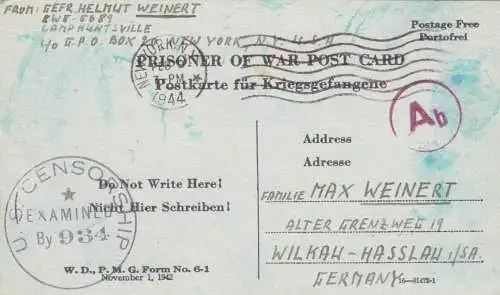 FROM: GEFR. HELMUT WEINERT
8WG-6689
CAMP HUNTSVILLE
℅ G.P.O. BOX 20, NEW YORK, N.Y. U.S.A
Postage Free
Portofrei
NEW YORK, N.Y.
PM
1944
PRISONER OF WAR POST CARD
Postkarte für Kriegsgefangene
Ab
U.S. CENSORSHIP
EXAMINED
By 934
Do Not Write Here!
Nicht Hier Schreiben!
W. D., P. M. G. Form No. 6-1
November 1, 1942
Address
Adresse
FAMILIE MAX WEINERT
ALTER GRENZWEG 19
WILKAU-HASSLAU i/SA.
GERMANY
16—31472-1